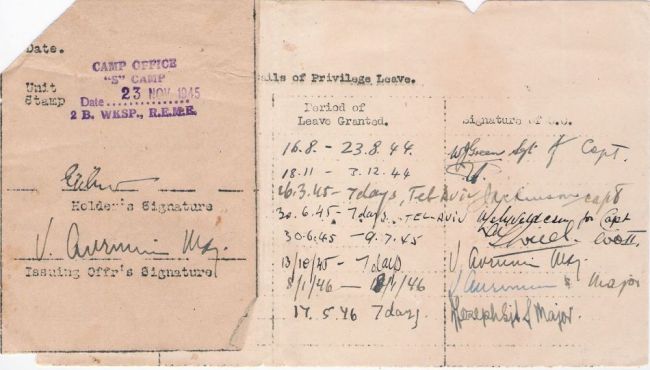 Date.
CAMP OFFICE
"S" CAMP
Unit
Stamp
Date 23 NOV 1945
2 B. WKSP., R.E.M.E.
Holder's Signature
V. Maj.
Issuing Offr's Signature
ails of Privilege Leave.
Period of
Leave Granted.
Signature of O.C.
16.8. - 23.8.44. Green Sgt. f Capt.
18.11 - 3.12.44
6.3.45 - 7 days, Tel Aviv Capt
30.6.45 - 7 days.. TEL-AVIV for Capt
30.6.45 - 9.7.45
13/10/45 - 7 days V. Maj.
8/1/46 - /46 Major
17.5.46 7 days. Joseph Sjt f Major.